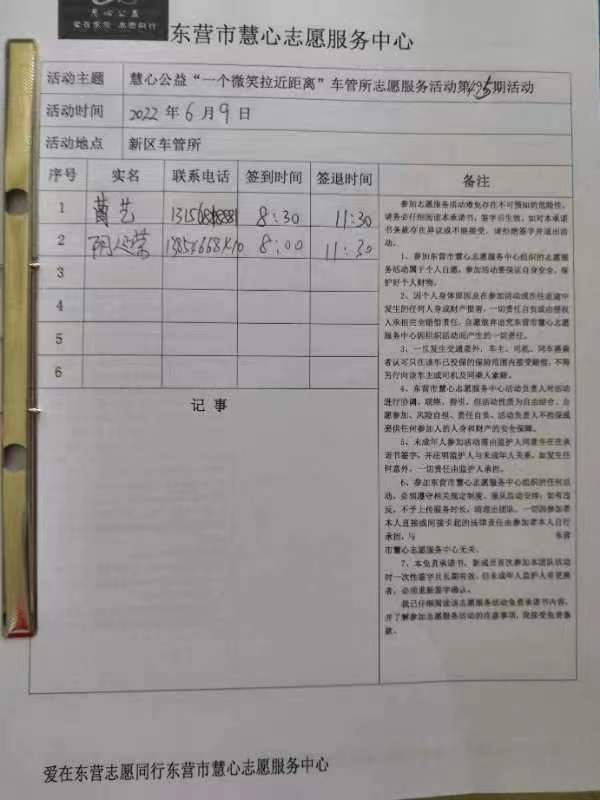 慧心公益
爱在东营 志愿同行
东营市慧心志愿服务中心
活动主题 慧心公益“一个微笑拉近距离”车管所志愿服务活动第195期活动
活动时间 2022年6月9日
活动地点 新区车管所
序号 实名 联系电话 签到时间 签退时间 备注
1 艺 8:30 11:30
2 荣 8:00 11:30
3
4
5
6
记事
参加志愿服务活动难免存在不可预知的危险性，
请务必仔细阅读本承诺书，签字后生效。如对本承诺
书条款存在异议或不能接受，请拒绝签字并退出活
动。
1、参加东营市慧心志愿服务中心组织的志愿服
务活动属于个人自愿。参加活动要保证自身安全，保
护好个人财物。
2、因个人身体原因及在参加活动或在往返途中
发生的任何人身或财产损害，一切责任自负或由侵权
人承担完全赔偿责任，自愿放弃追究东营市慧心志愿
服务中心因组织活动而产生的一切责任。
3、一旦发生交通意外，车主、司机、同车搭乘
者认可只在该车已投保的保险范围内接受赔偿，不再
另行向该车主或司机及同乘人索赔。
4、东营市慧心志愿服务中心活动负责人对活动
进行协调、联络、指引。但活动性质为自由结合，自
愿参加、风险自担、责任自负。活动负责人不担保或
提供任何参加人的人身和财产的安全保障。
5、未成年人参加活动需由监护人同意并在在承
诺书签字，并注明监护人与未成年人关系。如发生任
何意外，一切责任由监护人承担。
6、参加东营市慧心志愿服务中心组织的任何活
动，必须遵守相关规定制度、服从活动安排；如有违
反，不予上传服务时长，请退出团队。一切因参加者
本人直接或间接引起的法律责任由参加者本人自行
承担，与 东营
市慧心志愿服务中心无关。
7、本免责承诺书，新成员首次参加本团队活动
时一次性签字且长期有效，但未成年人监护人有更换
者，必须重新签字确认。
我已仔细阅读该志愿服务活动免责承诺书内容，
并了解参加志愿服务活动的注意事项，我接受免责条
款。
爱在东营志愿同行东营市慧心志愿服务中心